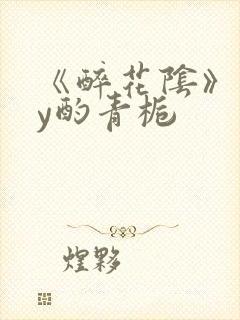 《醉花阴》
y酌青栀
煌夥